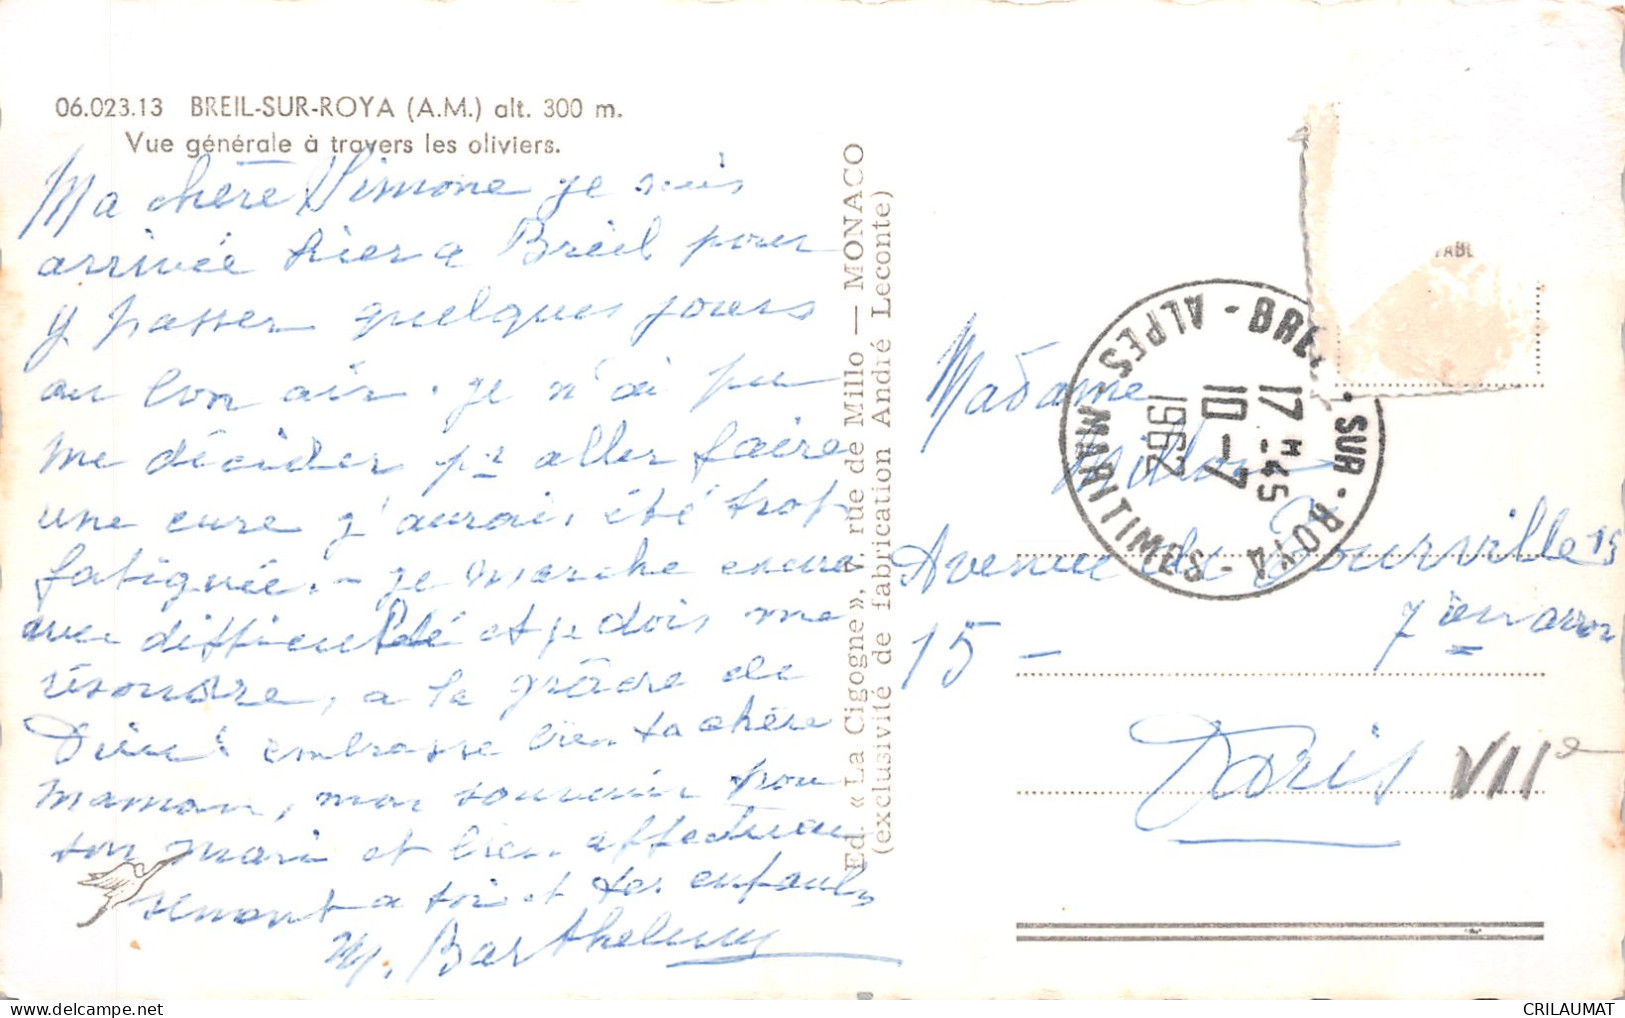 06.023.13 BREIL-SUR-ROYA (A.M.) alt. 300 m.
Vue générale à travers les oliviers.
Ma chère Simone je suis
arrivée hier a Breil pour
y passer quelques jours
au bon air. je n'ai pu
me décider pr aller faire
une cure j'aurais été trop
fatiguée. - je marche encore
avec difficulté et je dois me
résoudre, a la grâce de
Dieu! embrasse bien ta chère
maman, mon souvenir pour
ton mari et bien affectueu
sement a toi et tes enfants
M. Barthelemy
Ed. « La Cigogne », v. rue de Millo — MONACO
(exclusivité de fabrication André Leconte)
BREIL - SUR - ROYA - ALPES MARITIMES -
17 H 45
10 - 7
1962
Madame
Avenue de Tourville 15
15 - 7 ième arron
Paris VIIe
CRILAUMAT